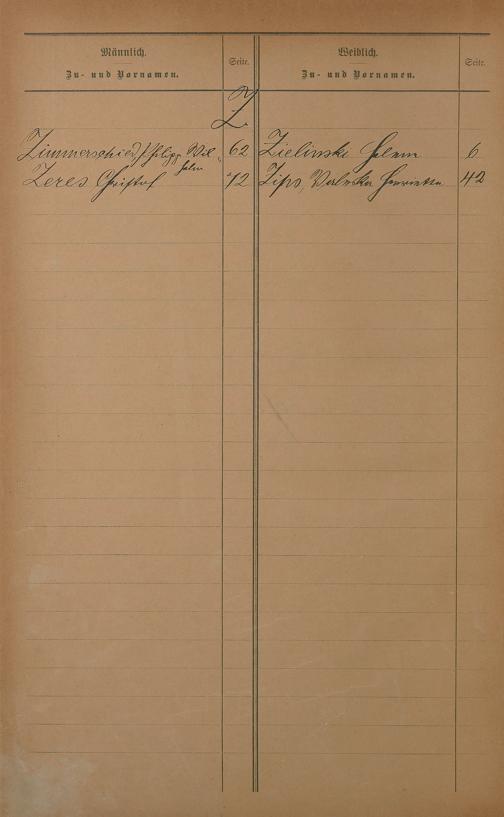 Männlich. Seite. Weiblich. Seite.
Zu- und Vornamen. Zu- und Vornamen.
Z.
Zimmerschied, Philipp Wil- 62 Zielinske Helene 6
helm
Zeres Christof 72 Zips, Valeska Henriette 42